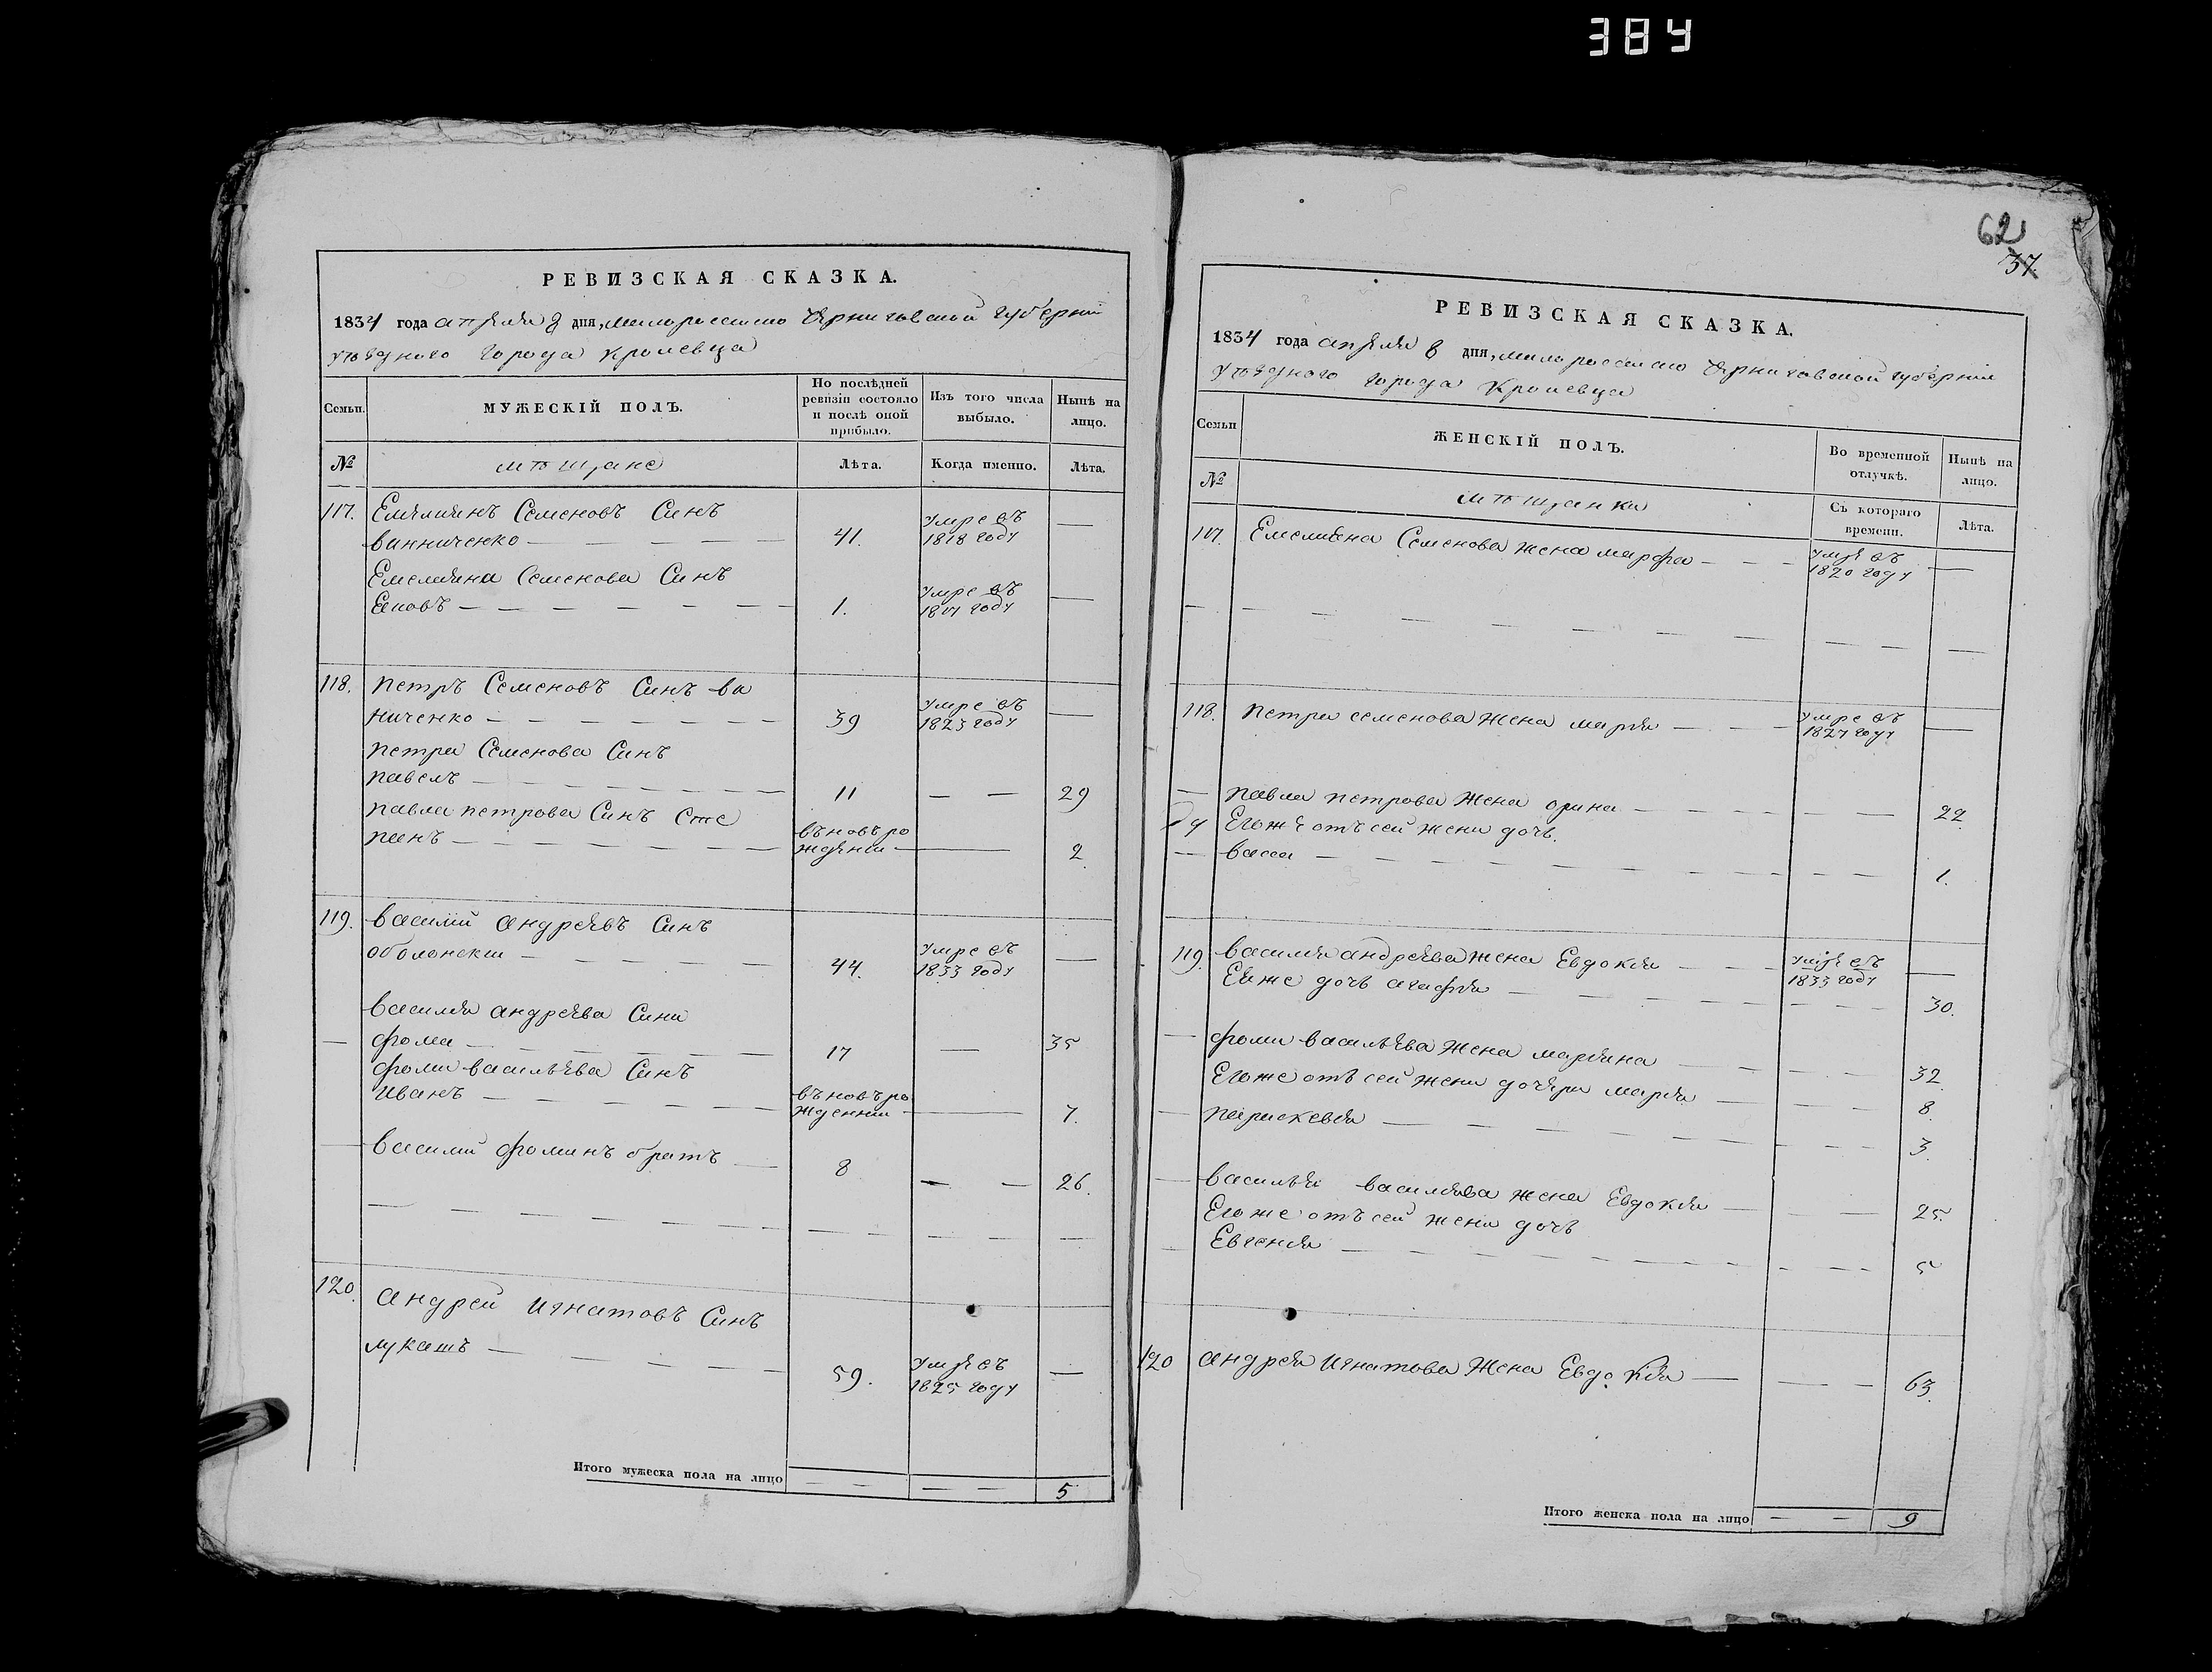 384
РЕВИЗСКАЯ СКАЗКА.
1834 года апреля 8 дня, малороссиско Черниговской губернии
уѣздного города Кролевца
Семьи. МУЖЕСКІЙ ПОЛЪ. По послѣдней ревизіи состояло и послѣ оной прибыло. Изъ того числа выбыло. Нынѣ на лицо.
№ мѣщане Лѣта. Когда именно. Лѣта.
117. Емелиянъ Семеновъ Синъ
ванниченко — 41. умре въ 1818 году —
Емелияна Семенова Синъ
— 1. умре въ году —
118. Петръ Семеновъ Синъ ва
ниченко — 39 умре въ 1823 году —
Петра Семенова Синъ
Павелъ — 11 — — 29
Павла Петрова Синъ Сте
панъ — въ новъ рожденни — 2
119. Василий Андреевъ Синъ
оболонскии — 44. умре въ 1833 году —
Василия Андреева Сини
— фома — 17 — 35
фоми васильева Синъ
Иванъ — въ новъ рожденни — 7.
— Василий фоминъ братъ — 8 — — 26.
120. Андрей Игнатовъ Синъ
лукашъ — 59. умре въ 1825 году —
Итого мужеска пола на лицо — — — — 5
62
37.
РЕВИЗСКАЯ СКАЗКА.
1834 года апреля 8 дня, малороссиско Черниговской губернии
уѣздного города Кролевца
Семьи ЖЕНСКІЙ ПОЛЪ. Во временной отлучкѣ. Нынѣ на лицо.
№ мѣщанки Съ котораго времени. Лѣта.
117. Емелияна Семенова жена марфа — умре въ 1820 году —
118. Петра семенова жена мария — умре въ году —
— Павла петрова жена орина — — — 22
Егоже отъ сей жени дочь.
— васса — 1.
119. василия андреева жена Евдокия — умре въ 1833 году —
Еяже дочь агафия — 30.
— фоми васильева жена мариина — 32
Егоже отъ сей жени дочери мария — 8.
— параскевия — 3.
— василья василиева жена Евдокия — 25.
Егоже отъ сей жени дочь
— Евгения — 5
120 андрея игнатова жена Евдокия — — — 63
Итого женска пола на лицо — — 9